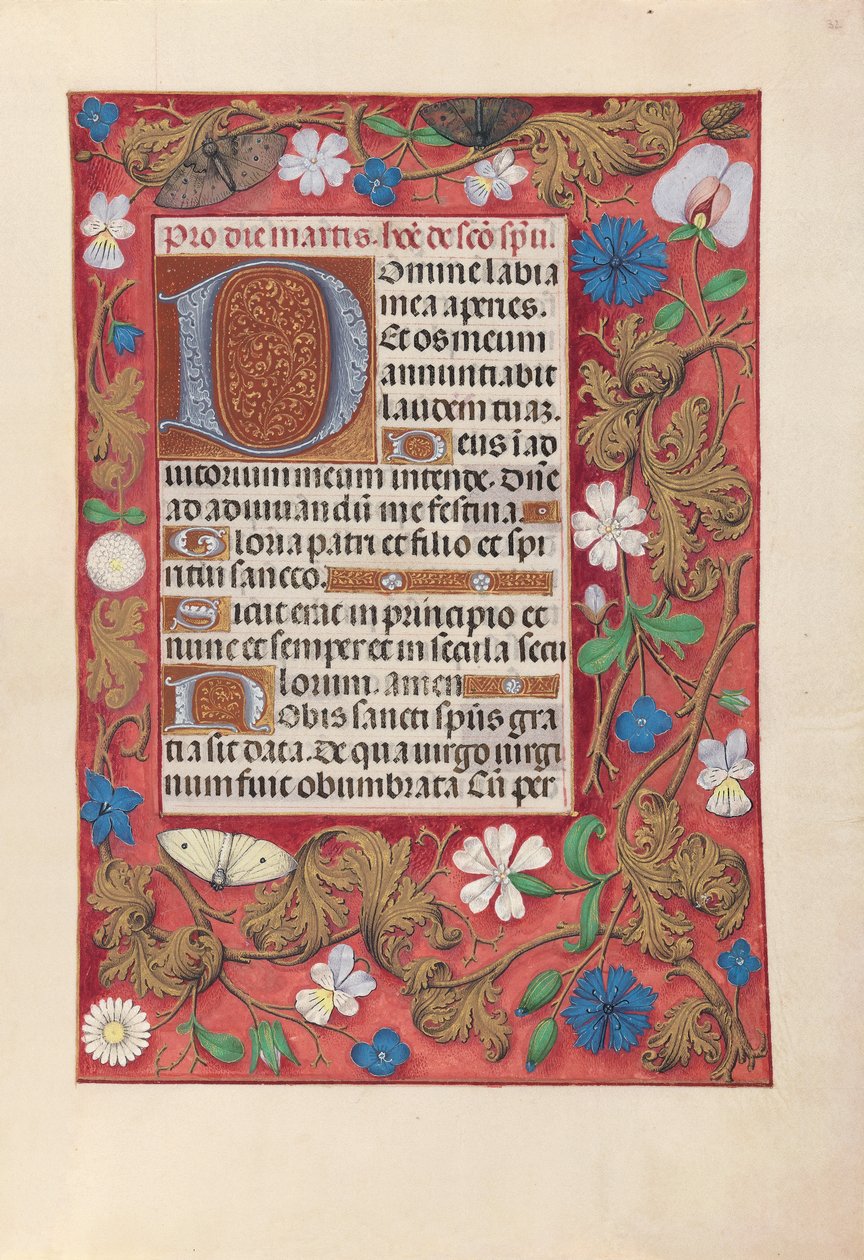 32
Pro die martis. hore de scō spū.
Domine labia
mea aperies.
Et os meum
annunciabit
laudem tuaz.
Deus ī ad
iutorium meum intende. Dn̄e
ad adiuuandū me festina.
Gloria patri et filio et spi
ritui sancto.
Sicut erat in principio et
nunc et semper et in secula secu
lorum. Amen
Nobis sancti spūs gra
tia sit data. De qua uirgo uirgi
num fuit obumbrata Cū per